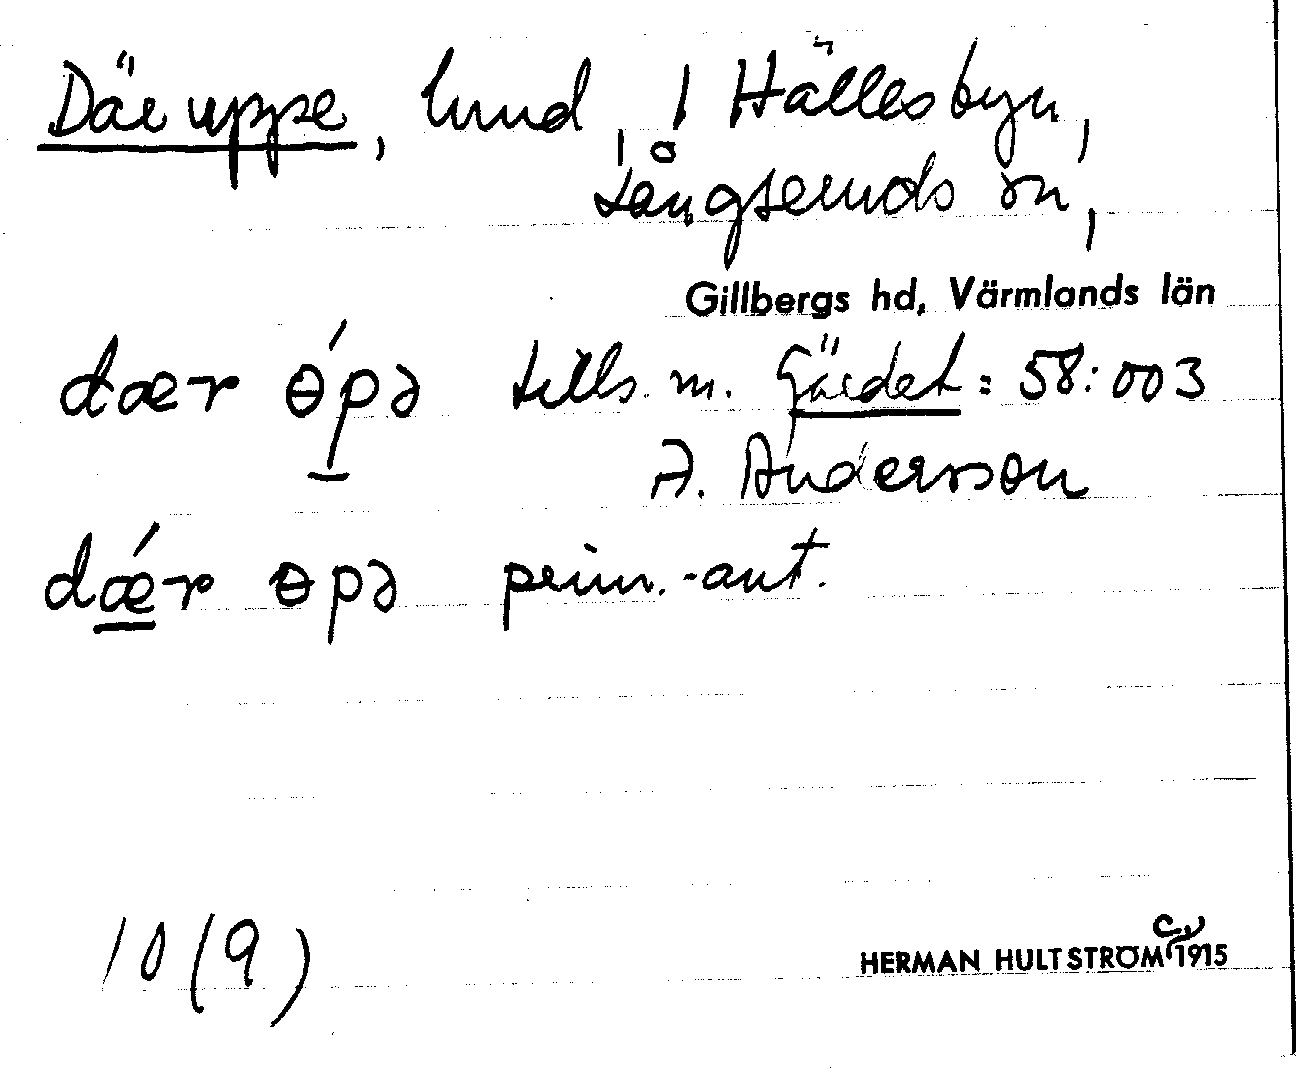 Där uppe, lund, i Hällesbyn,
Långseruds sn,
Gillbergs hd, Värmlands län
dær ɵ́pə tills. m. Gärdet: 58:003
A. Andersson
dǽr ɵpə prim.-ant.
10 (9)
HERMAN HULTSTRÖM 1915